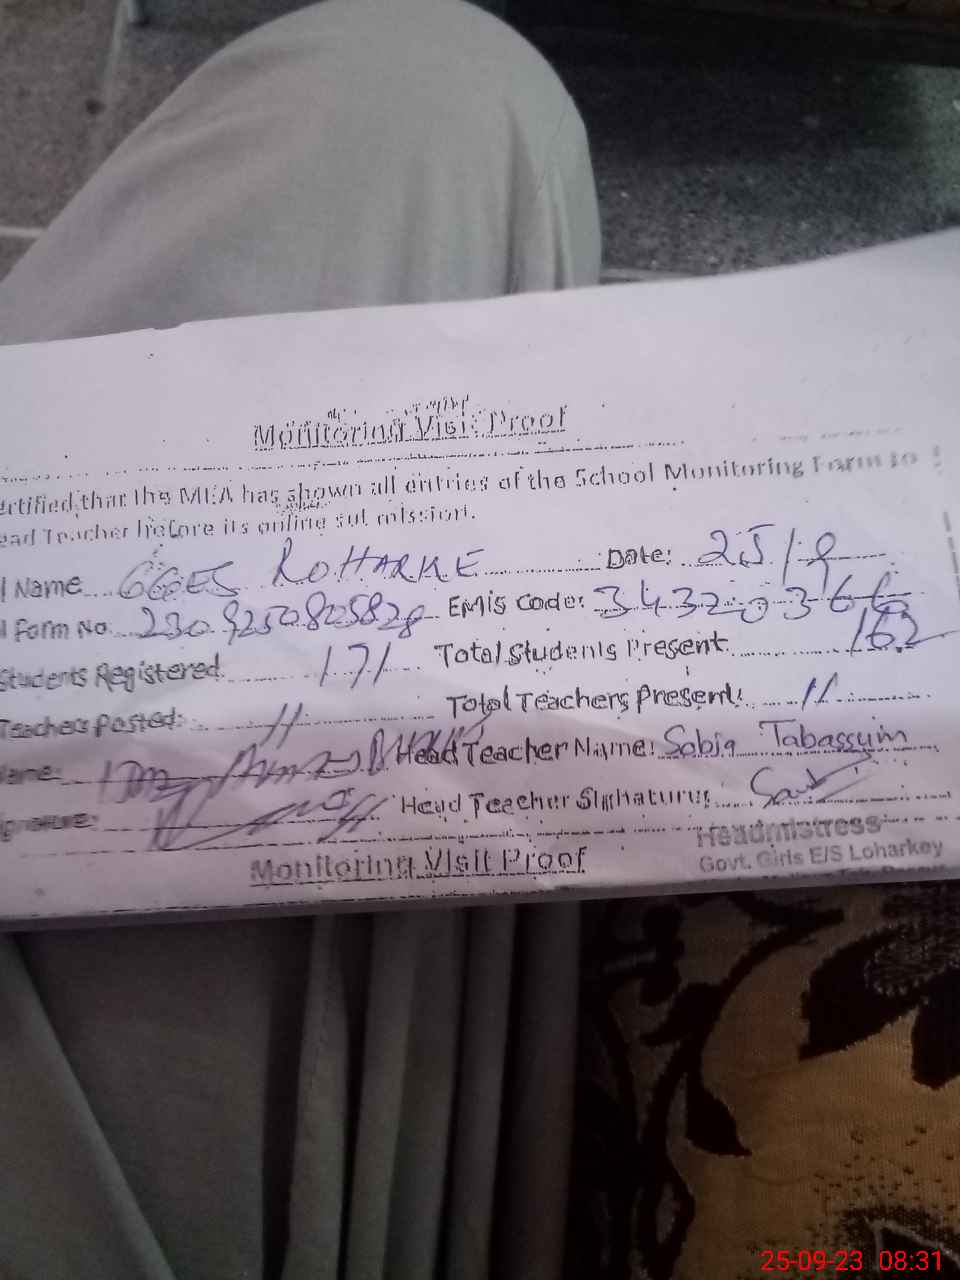 Monitoring Visit Proof
ertified that the MEA has shown all entries of the School Monitoring Form to
ead Teacher before its online submission.
l Name GGES ROHARKE Date: 25/9
l Form No. EMIS Code: 34320366
Students Registered 171 Total Students Present 162
Teachers Posted: 11 Total Teachers Present: 11
ame: Head Teacher Name: Sabia Tabassum
ignature: Head Teacher Signature:
Monitoring Visit Proof
Headmistress
Govt. Girls E/S Loharkey
25-09-23 08:31